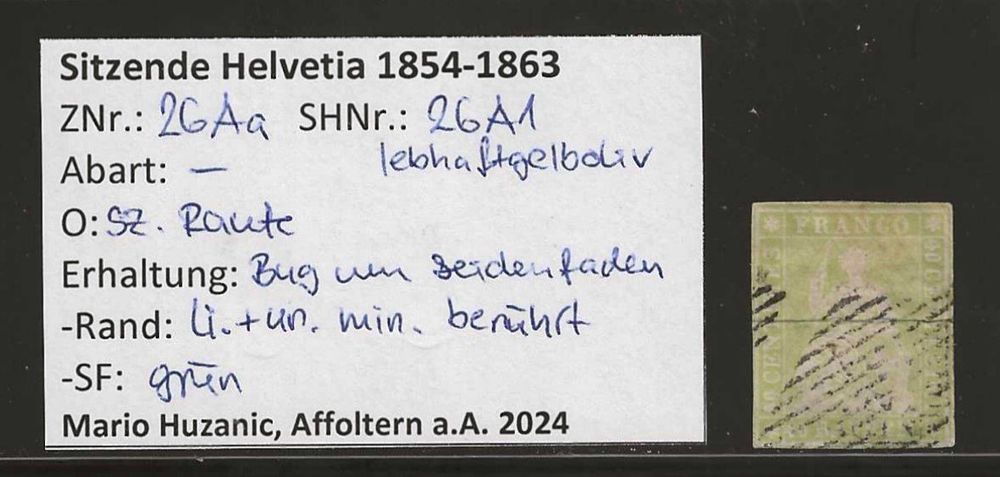 Sitzende Helvetia 1854-1863
ZNr.: 26Aa SHNr.: 26A1
lebhaftgelboliv
Abart: —
O: sz. Raute
Erhaltung: Bug um Seidenfaden
-Rand: li. + un. min. berührt
-SF: grün
Mario Huzanic, Affoltern a.A. 2024
FRANCO